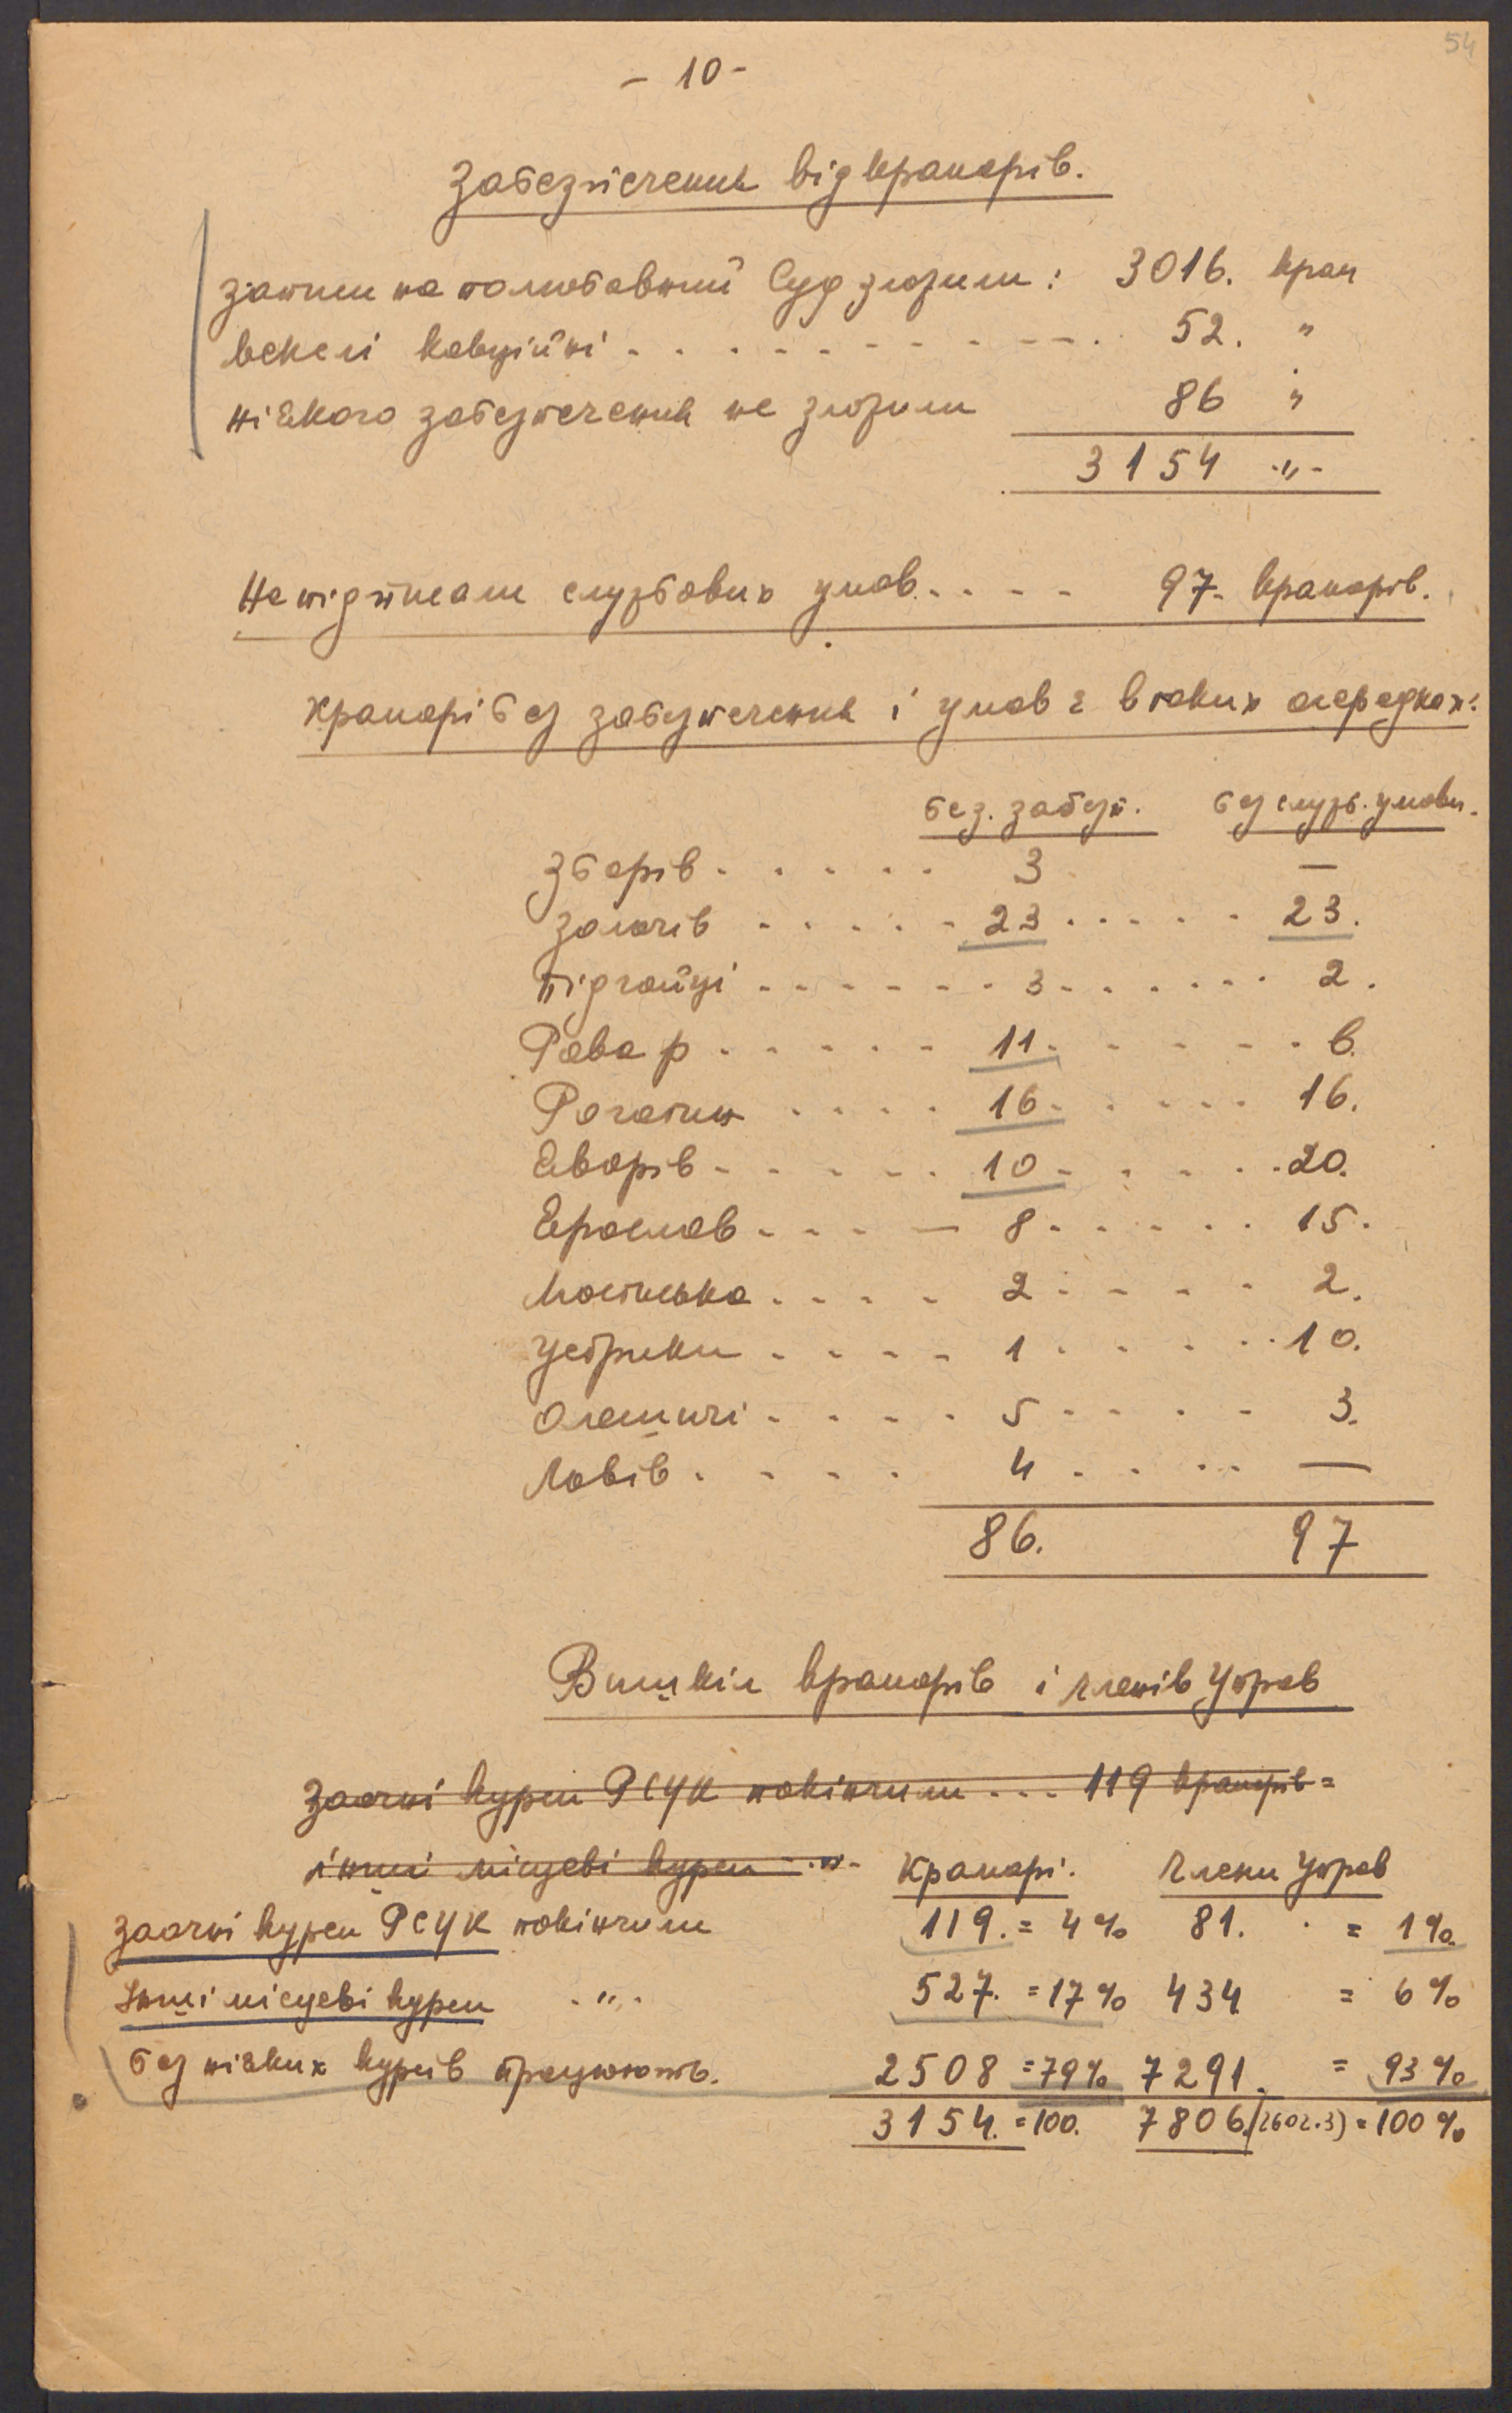 54
- 10 -
Забезпечення від крамарів.
запис на полюбовний Суд зложили: 3016. крам
векслі кавційні . . . . . . . . . . 52. "
ніякого забезпечення не зложили 86 "
3154 -"-
Не підписали службових умов . . . . 97. крамарів.
Крамарі без забезпечення і умов є в таких осередках:
без. забезп. без служб. умови.
Зборів . . . . . 3 —
Золочів . . . . . 23 . . . . . 23.
Підгайці . . . . . . 3 . . . . . . 2.
Рава р . . . . . 11. . . . . . 6.
Рогатин . . . . 16. . . . . 16.
Яворів . . . . . 10 . . . . . 20.
Ярослав . . . — 8 . . . . . 15.
Мостиська . . . . 2 . . . . . 2.
Устрики . . . . 1 . . . . . 10.
Олешичі . . . . 5 . . . . . 3.
Львів . . . . 4 . . . . —
86. 97
Вишкіл крамарів і членів Управ
Заочні курси РСУК покінчили . . . 119 крамарів =
інші місцеві курси -"-
Крамарі. Члени Управ
Заочні курси РСУК покінчили 119. = 4% 81. = 1%
Інші місцеві курси -"- 527. = 17% 434 = 6%
без ніяких курсів працюють. 2508 = 79% 7291. = 93%
3154. = 100. 7806. (2602.3) = 100%